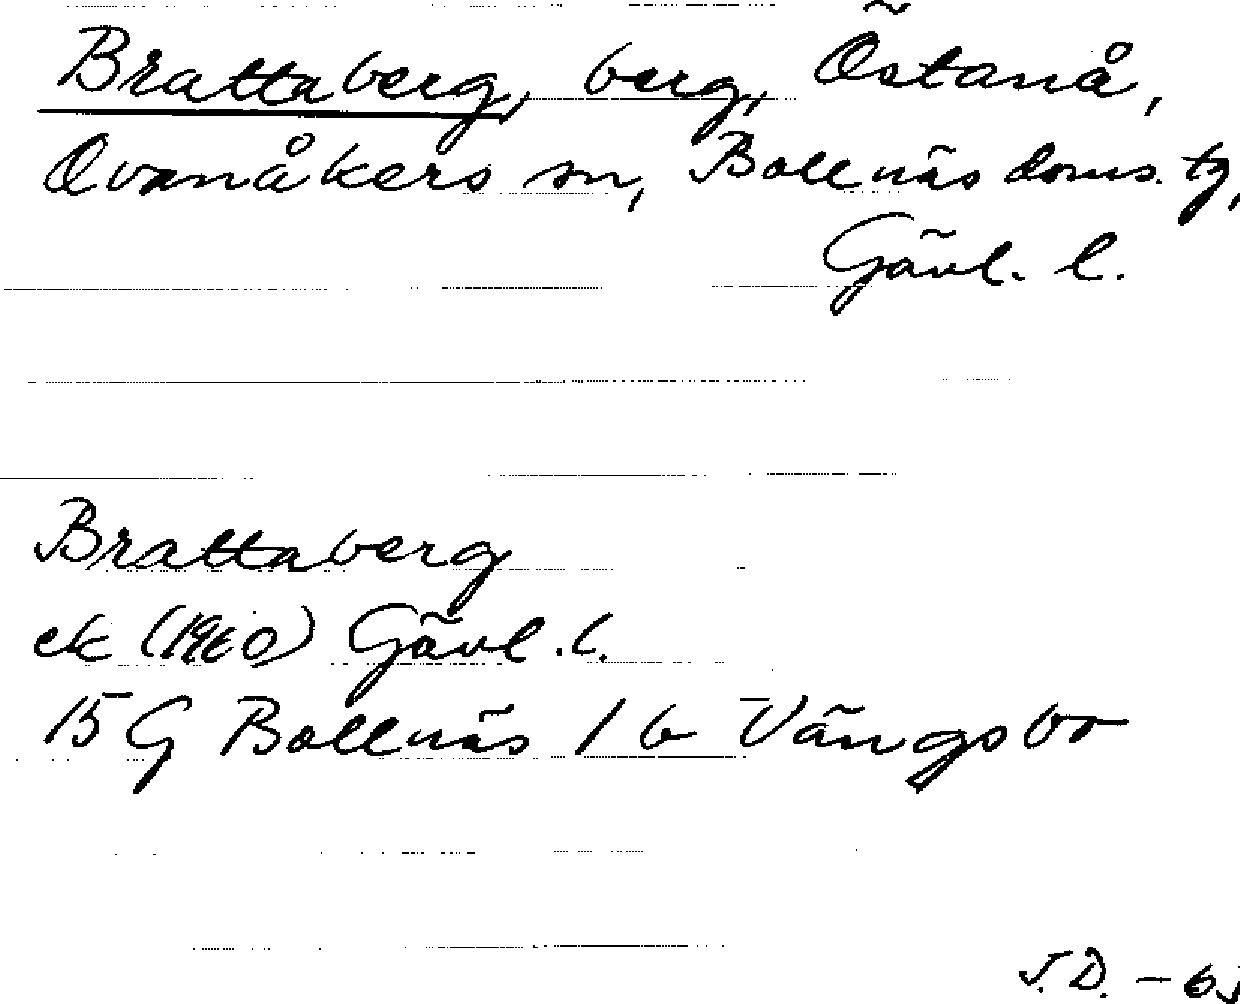 Brattaberg, berg, Östanå,
Ovanåkers sn, Bollnäs doms. tg,
Gävl. l.
Brattaberg
ek (1960) Gävl. l.
15 G Bollnäs 1 b Vängsbo
J.D. - 63